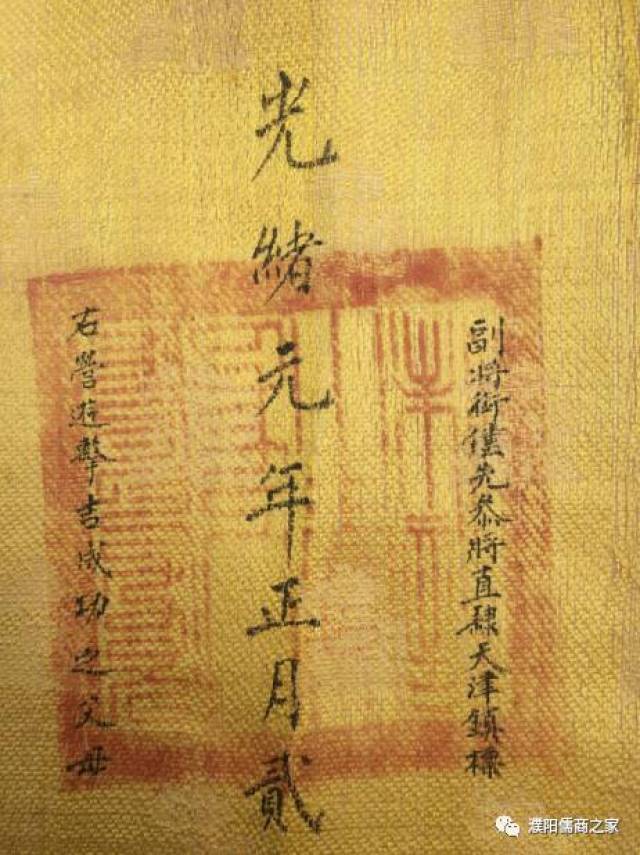 副將銜儘先叅將直隸天津鎮標
光緒元年正月貳
右營遊擊吉成功之父母
濮阳儒商之家